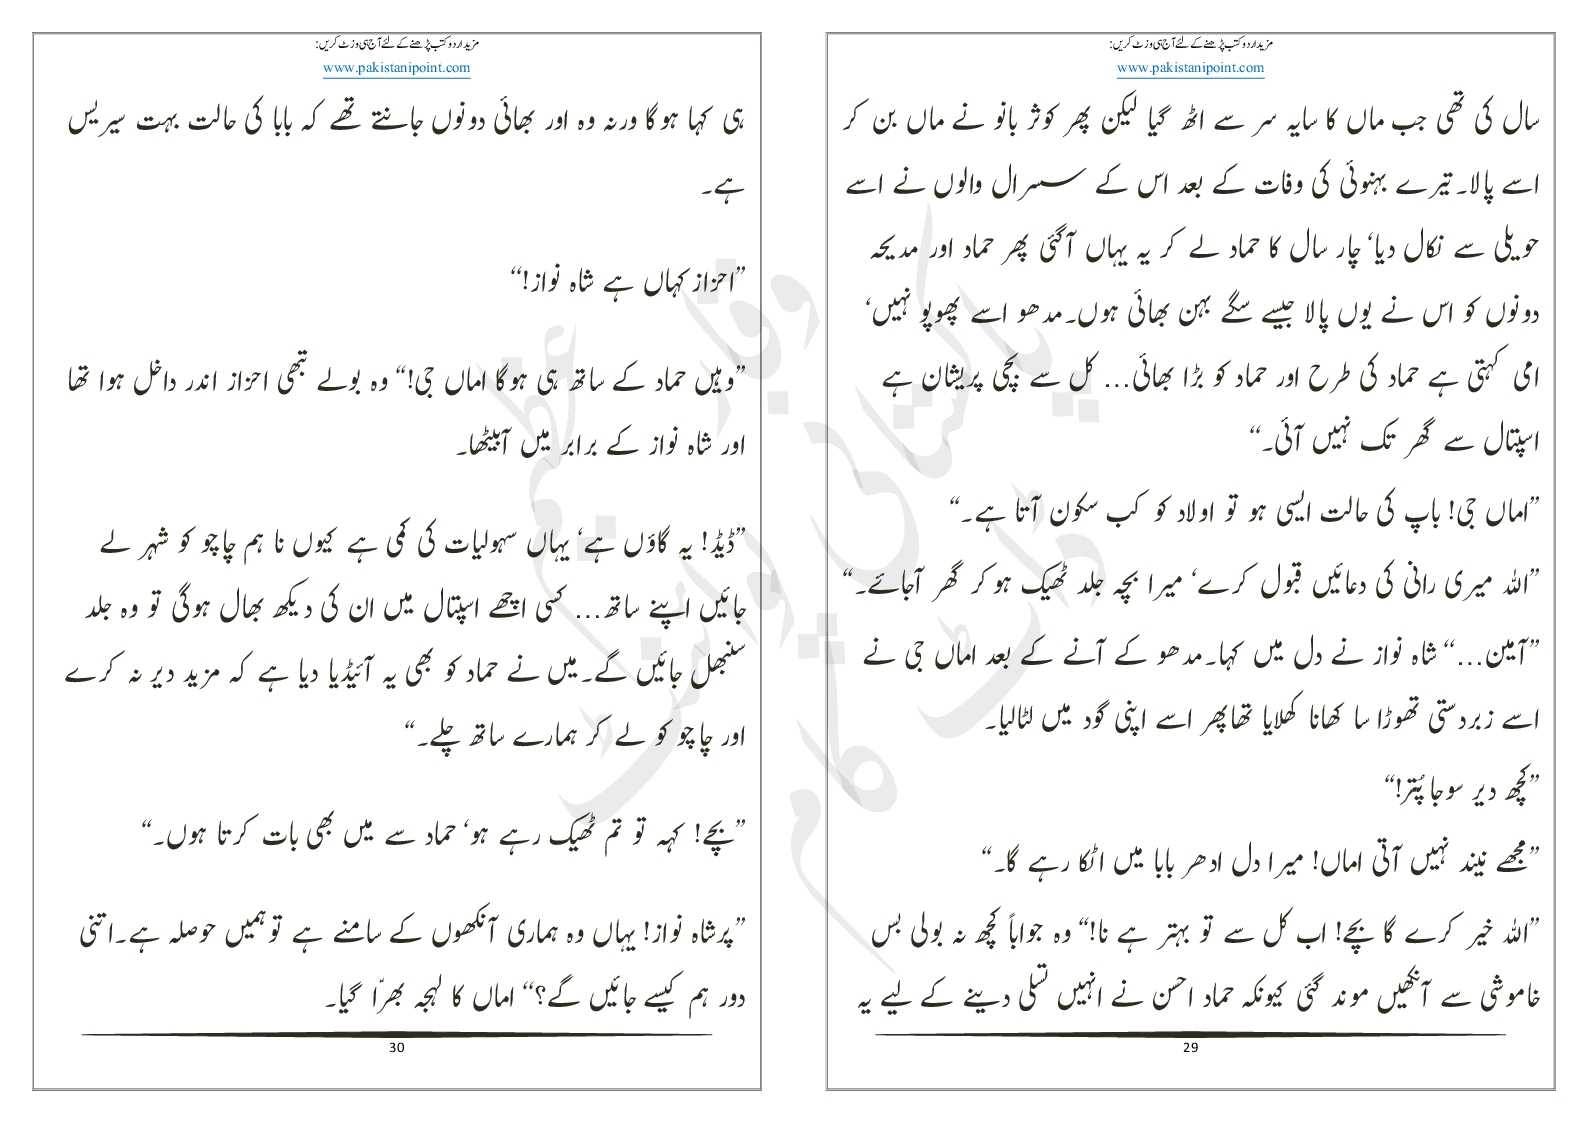 مزید اردو کتب پڑھنے کے لئے آج ہی وزٹ کریں:
www.pakistanipoint.com
سال کی تھی جب ماں کا سایہ سر سے اٹھ گیا لیکن پھر کوثر بانو نے ماں بن کر
اسے پالا۔ تیرے بہنوئی کی وفات کے بعد اس کے سسرال والوں نے اسے
حویلی سے نکال دیا‘ چار سال کا حماد لے کر یہ یہاں آگئی پھر حماد اور مدیحہ
دونوں کو اس نے یوں پالا جیسے سگے بہن بھائی ہوں۔مدھو اسے پھوپو نہیں‘
امی کہتی ہے حماد کی طرح اور حماد کو بڑا بھائی… کل سے بچی پریشان ہے
اسپتال سے گھر تک نہیں آئی۔‘‘
’’اماں جی! باپ کی حالت ایسی ہو تو اولاد کو کب سکون آتا ہے۔‘‘
’’اللہ میری رانی کی دعائیں قبول کرے‘ میرا بچہ جلد ٹھیک ہو کر گھر آجائے۔‘‘
’’آمین…‘‘ شاہ نواز نے دل میں کہا۔مدھو کے آنے کے بعد اماں جی نے
اسے زبردستی تھوڑا سا کھانا کھلایا تھاپھر اسے اپنی گود میں لٹالیا۔
’’کچھ دیر سوجا پُتر!‘‘
’’مجھے نیند نہیں آتی اماں! میرا دل ادھر بابا میں اٹکا رہے گا۔‘‘
’’اللہ خیر کرے گا بچے! اب کل سے تو بہتر ہے نا!‘‘ وہ جواباً کچھ نہ بولی بس
خاموشی سے آنکھیں موند گئی کیونکہ حماد احسن نے انہیں تسلی دینے کے لیے یہ
29
مزید اردو کتب پڑھنے کے لئے آج ہی وزٹ کریں:
www.pakistanipoint.com
ہی کہا ہوگا ورنہ وہ اور بھائی دونوں جانتے تھے کہ بابا کی حالت بہت سیریس
ہے۔
’’احزاز کہاں ہے شاہ نواز!‘‘
’’وہیں حماد کے ساتھ ہی ہوگا اماں جی!‘‘ وہ بولے تبھی احزاز اندر داخل ہوا تھا
اور شاہ نواز کے برابر میں آبیٹھا۔
’’ڈیڈ! یہ گاؤں ہے‘ یہاں سہولیات کی کمی ہے کیوں نا ہم چاچو کو شہر لے
جائیں اپنے ساتھ… کسی اچھے اسپتال میں ان کی دیکھ بھال ہوگی تو وہ جلد
سنبھل جائیں گے۔میں نے حماد کو بھی یہ آئیڈیا دیا ہے کہ مزید دیر نہ کرے
اور چاچو کو لے کر ہمارے ساتھ چلے۔‘‘
’’بچے! کہہ تو تم ٹھیک رہے ہو‘ حماد سے میں بھی بات کرتا ہوں۔‘‘
’’پرشاہ نواز! یہاں وہ ہماری آنکھوں کے سامنے ہے توہمیں حوصلہ ہے۔اتنی
دور ہم کیسے جائیں گے؟‘‘ اماں کا لہجہ بھرّا گیا۔
30
پاکستانی پوائنٹ ڈاٹ کام
وقار عظیم